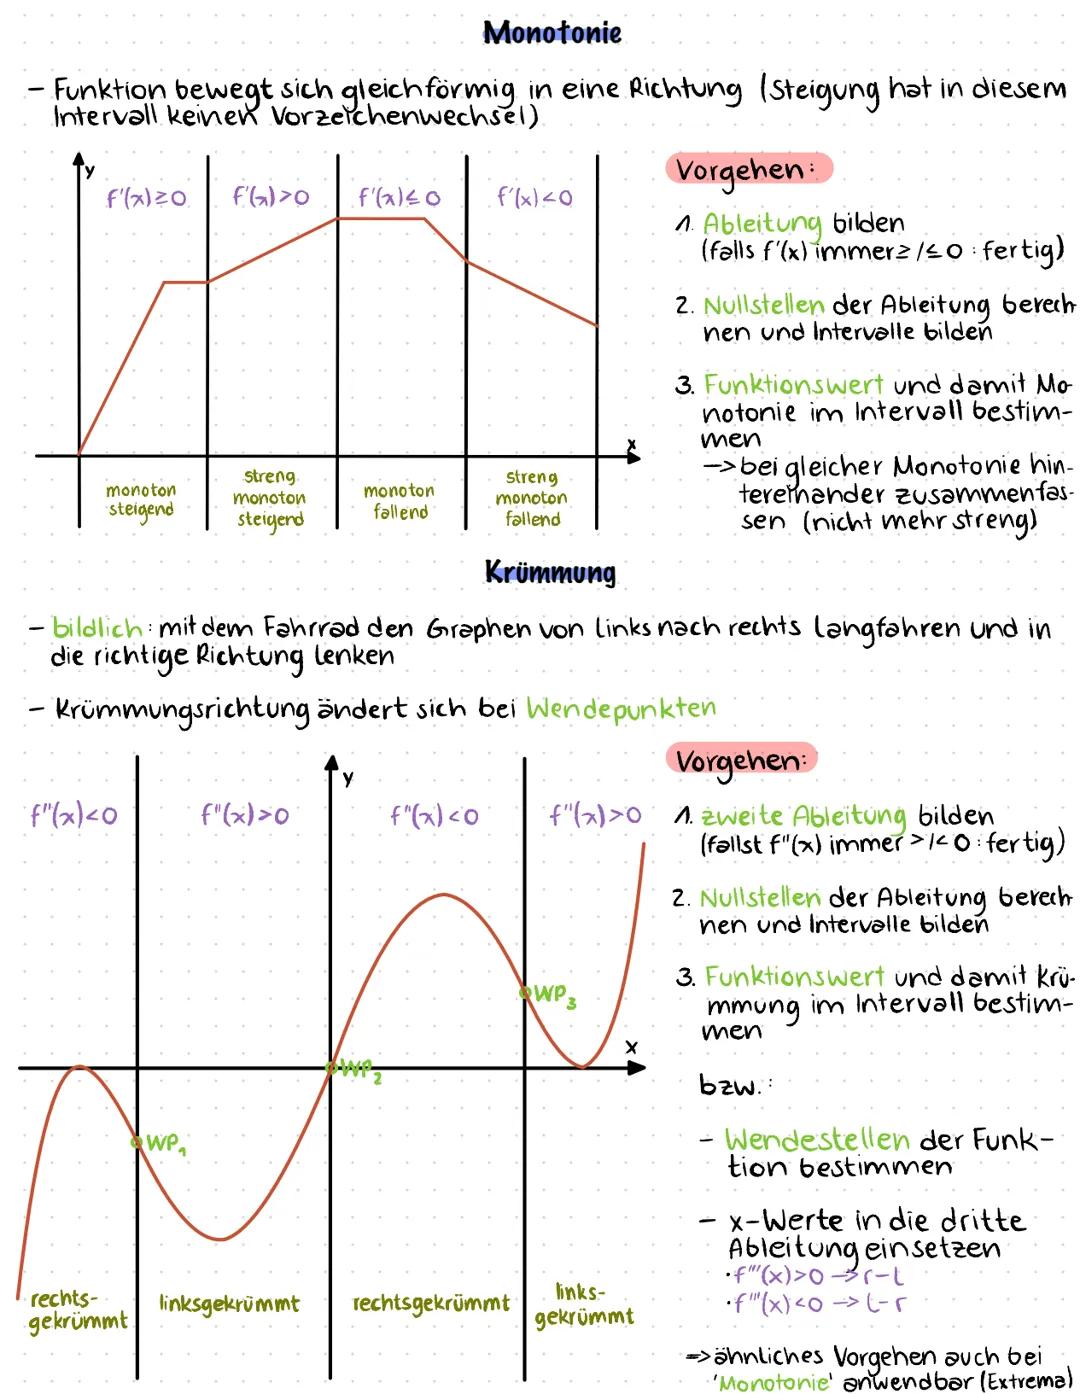 Monotonie
- Funktion bewegt sich gleichförmig in eine Richtung (Steigung hat in diesem
Intervall keinen Vorzeichenwechsel)
y
f'(x)≥0 f'(x)>0 f'(x)≤0 f'(x)<0
x
monoton
steigend
streng
monoton
steigend
monoton
fallend
streng
monoton
fallend
Vorgehen:
1. Ableitung bilden
(falls f'(x) immer ≥/≤ 0 : fertig)
2. Nullstellen der Ableitung berech
nen und Intervalle bilden
3. Funktionswert und damit Mo-
notonie im Intervall bestim-
men
-> bei gleicher Monotonie hin-
tereinander zusammenfas-
sen (nicht mehr streng)
Krümmung
- bildlich: mit dem Fahrrad den Graphen von links nach rechts langfahren und in
die richtige Richtung lenken
- Krümmungsrichtung ändert sich bei Wendepunkten
y
f''(x)<0 f''(x)>0 f''(x)<0 f''(x)>0
WP3
x
WP2
WP1
rechts-
gekrümmt
linksgekrümmt
rechtsgekrümmt
links-
gekrümmt
Vorgehen:
1. zweite Ableitung bilden
(fallst f''(x) immer >/< 0 : fertig)
2. Nullstellen der Ableitung berech
nen und Intervalle bilden
3. Funktionswert und damit Krü-
mmung im Intervall bestim-
men
bzw.:
- Wendestellen der Funk-
tion bestimmen
- x-Werte in die dritte
Ableitung einsetzen
· f'''(x)>0 -> r-l
· f'''(x)<0 -> l-r
=> ähnliches Vorgehen auch bei
'Monotonie' anwendbar (Extrema)